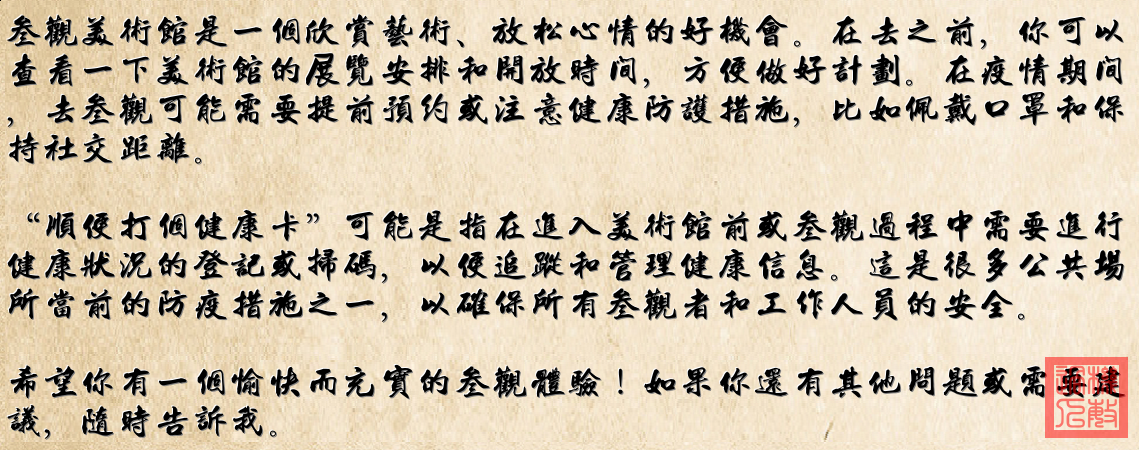 叁觀美術館是一個欣賞藝術、放松心情的好機會。在去之前，你可以
查看一下美術館的展覽安排和開放時间，方便做好計劃。在疫情期间
，去叁觀可能需要提前預约或注意健康防護措施，比如佩戴口罩和保
持社交距離。
“順便打個健康卡”可能是指在進入美術館前或叁觀過程中需要進行
健康狀況的登記或掃碼，以便追蹤和管理健康信息。這是很多公共場
所當前的防疫措施之一，以確保所有叁觀者和工作人員的安全。
希望你有一個愉快而充實的叁觀體驗！如果你還有其他問題或需要建
議，隨時告訴我。